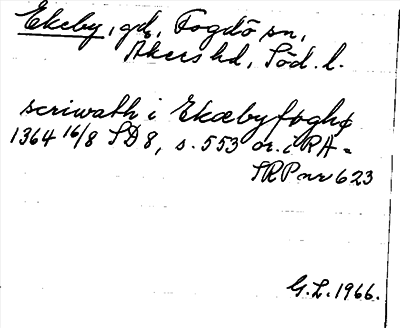 Ekeby, gd, Fogdö sn,
Åkers hd, Söd. l.
scriwath i Ekæbyføghø
1364 16/8 SD 8, s. 553 or. i RA =
SRP nr 623
G.L. 1966.